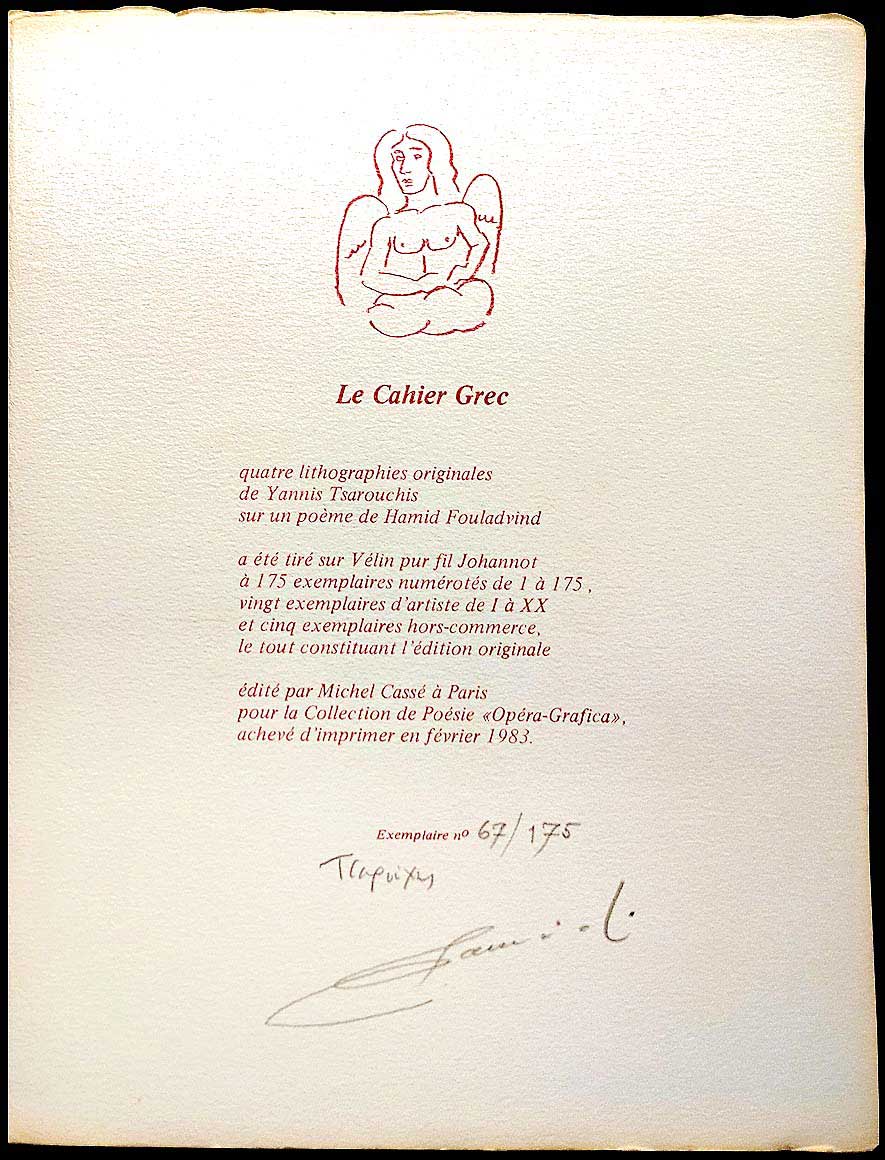 Le Cahier Grec
quatre lithographies originales
de Yannis Tsarouchis
sur un poème de Hamid Fouladvind
a été tiré sur Vélin pur fil Johannot
à 175 exemplaires numérotés de 1 à 175 ,
vingt exemplaires d'artiste de I à XX
et cinq exemplaires hors-commerce,
le tout constituant l'édition originale
édité par Michel Cassé à Paris
pour la Collection de Poésie «Opéra-Grafica»,
achevé d'imprimer en février 1983.
Exemplaire nº 67/175